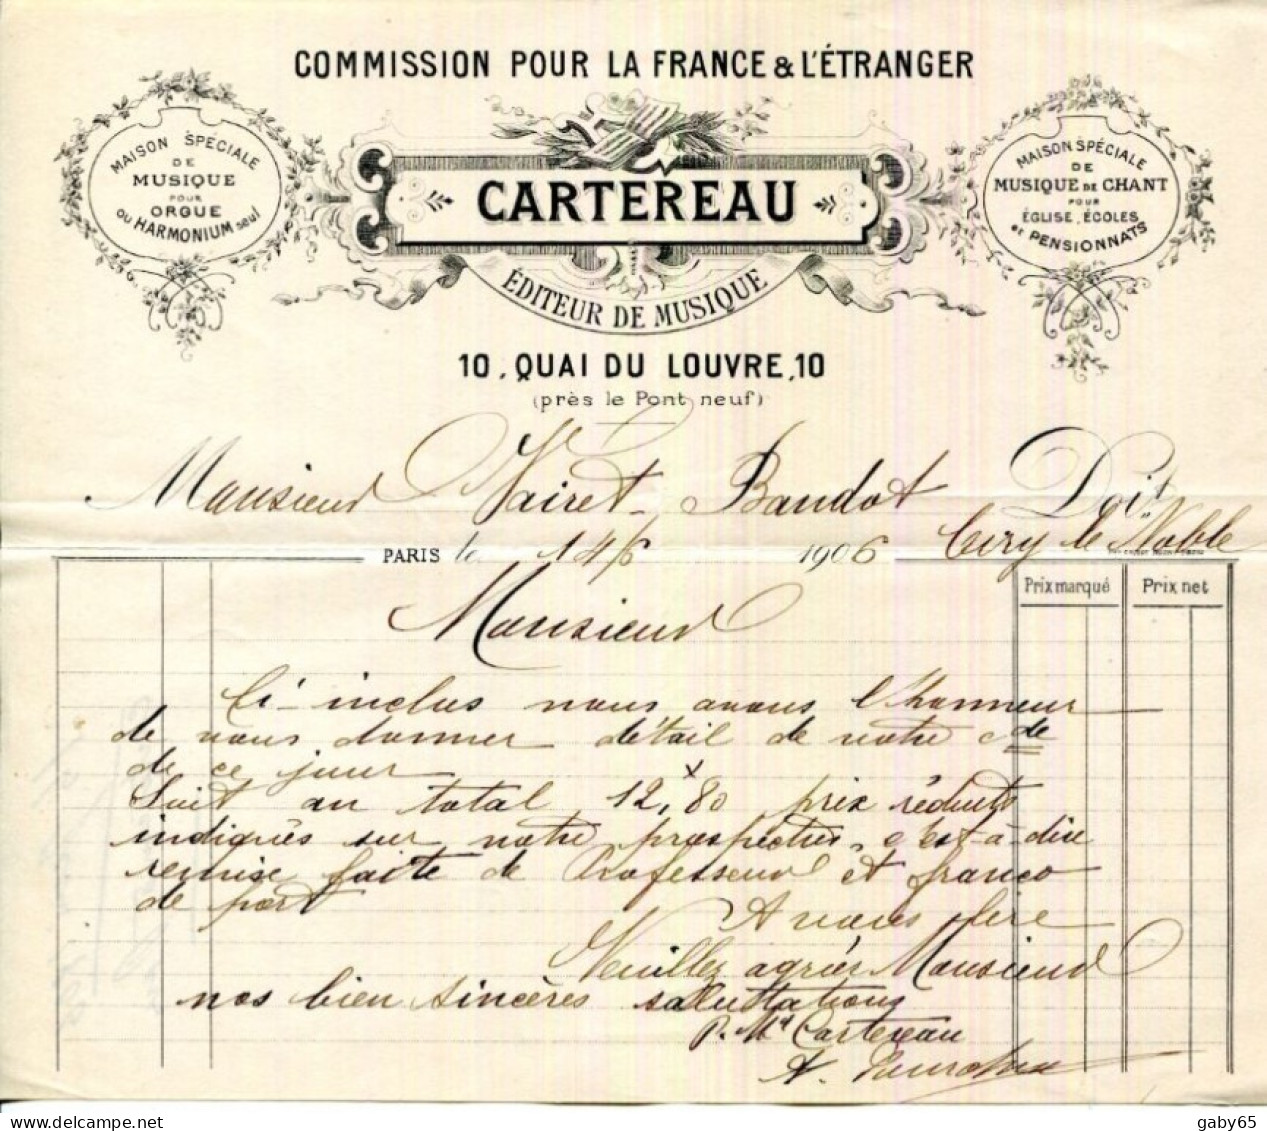 COMMISSION POUR LA FRANCE & L'ÉTRANGER
MAISON SPÉCIALE
DE
MUSIQUE
POUR
ORGUE
OU HARMONIUM seul
CARTEREAU
ÉDITEUR DE MUSIQUE
MAISON SPÉCIALE
DE
MUSIQUE DE CHANT
POUR
ÉGLISE, ÉCOLES
ET PENSIONNATS
10, QUAI DU LOUVRE, 10
(près le Pont neuf)
Monsieur Vairet-Baudot Doit
Ciry le Noble
PARIS le 14/6 1906
Prix marqué Prix net
Monsieur
Ci-inclus nous avons l'honneur
de vous donner détail de votre cde
de ce jour
Soit au total 12,80 prix réduits
indiqués sur notre prospectus, c'est-à-dire
remise faite de Professeur et franco
de port
A vous lire
Veuillez agréer Monsieur
nos bien sincères salutations
P. Mr Cartereau
A.
gaby65